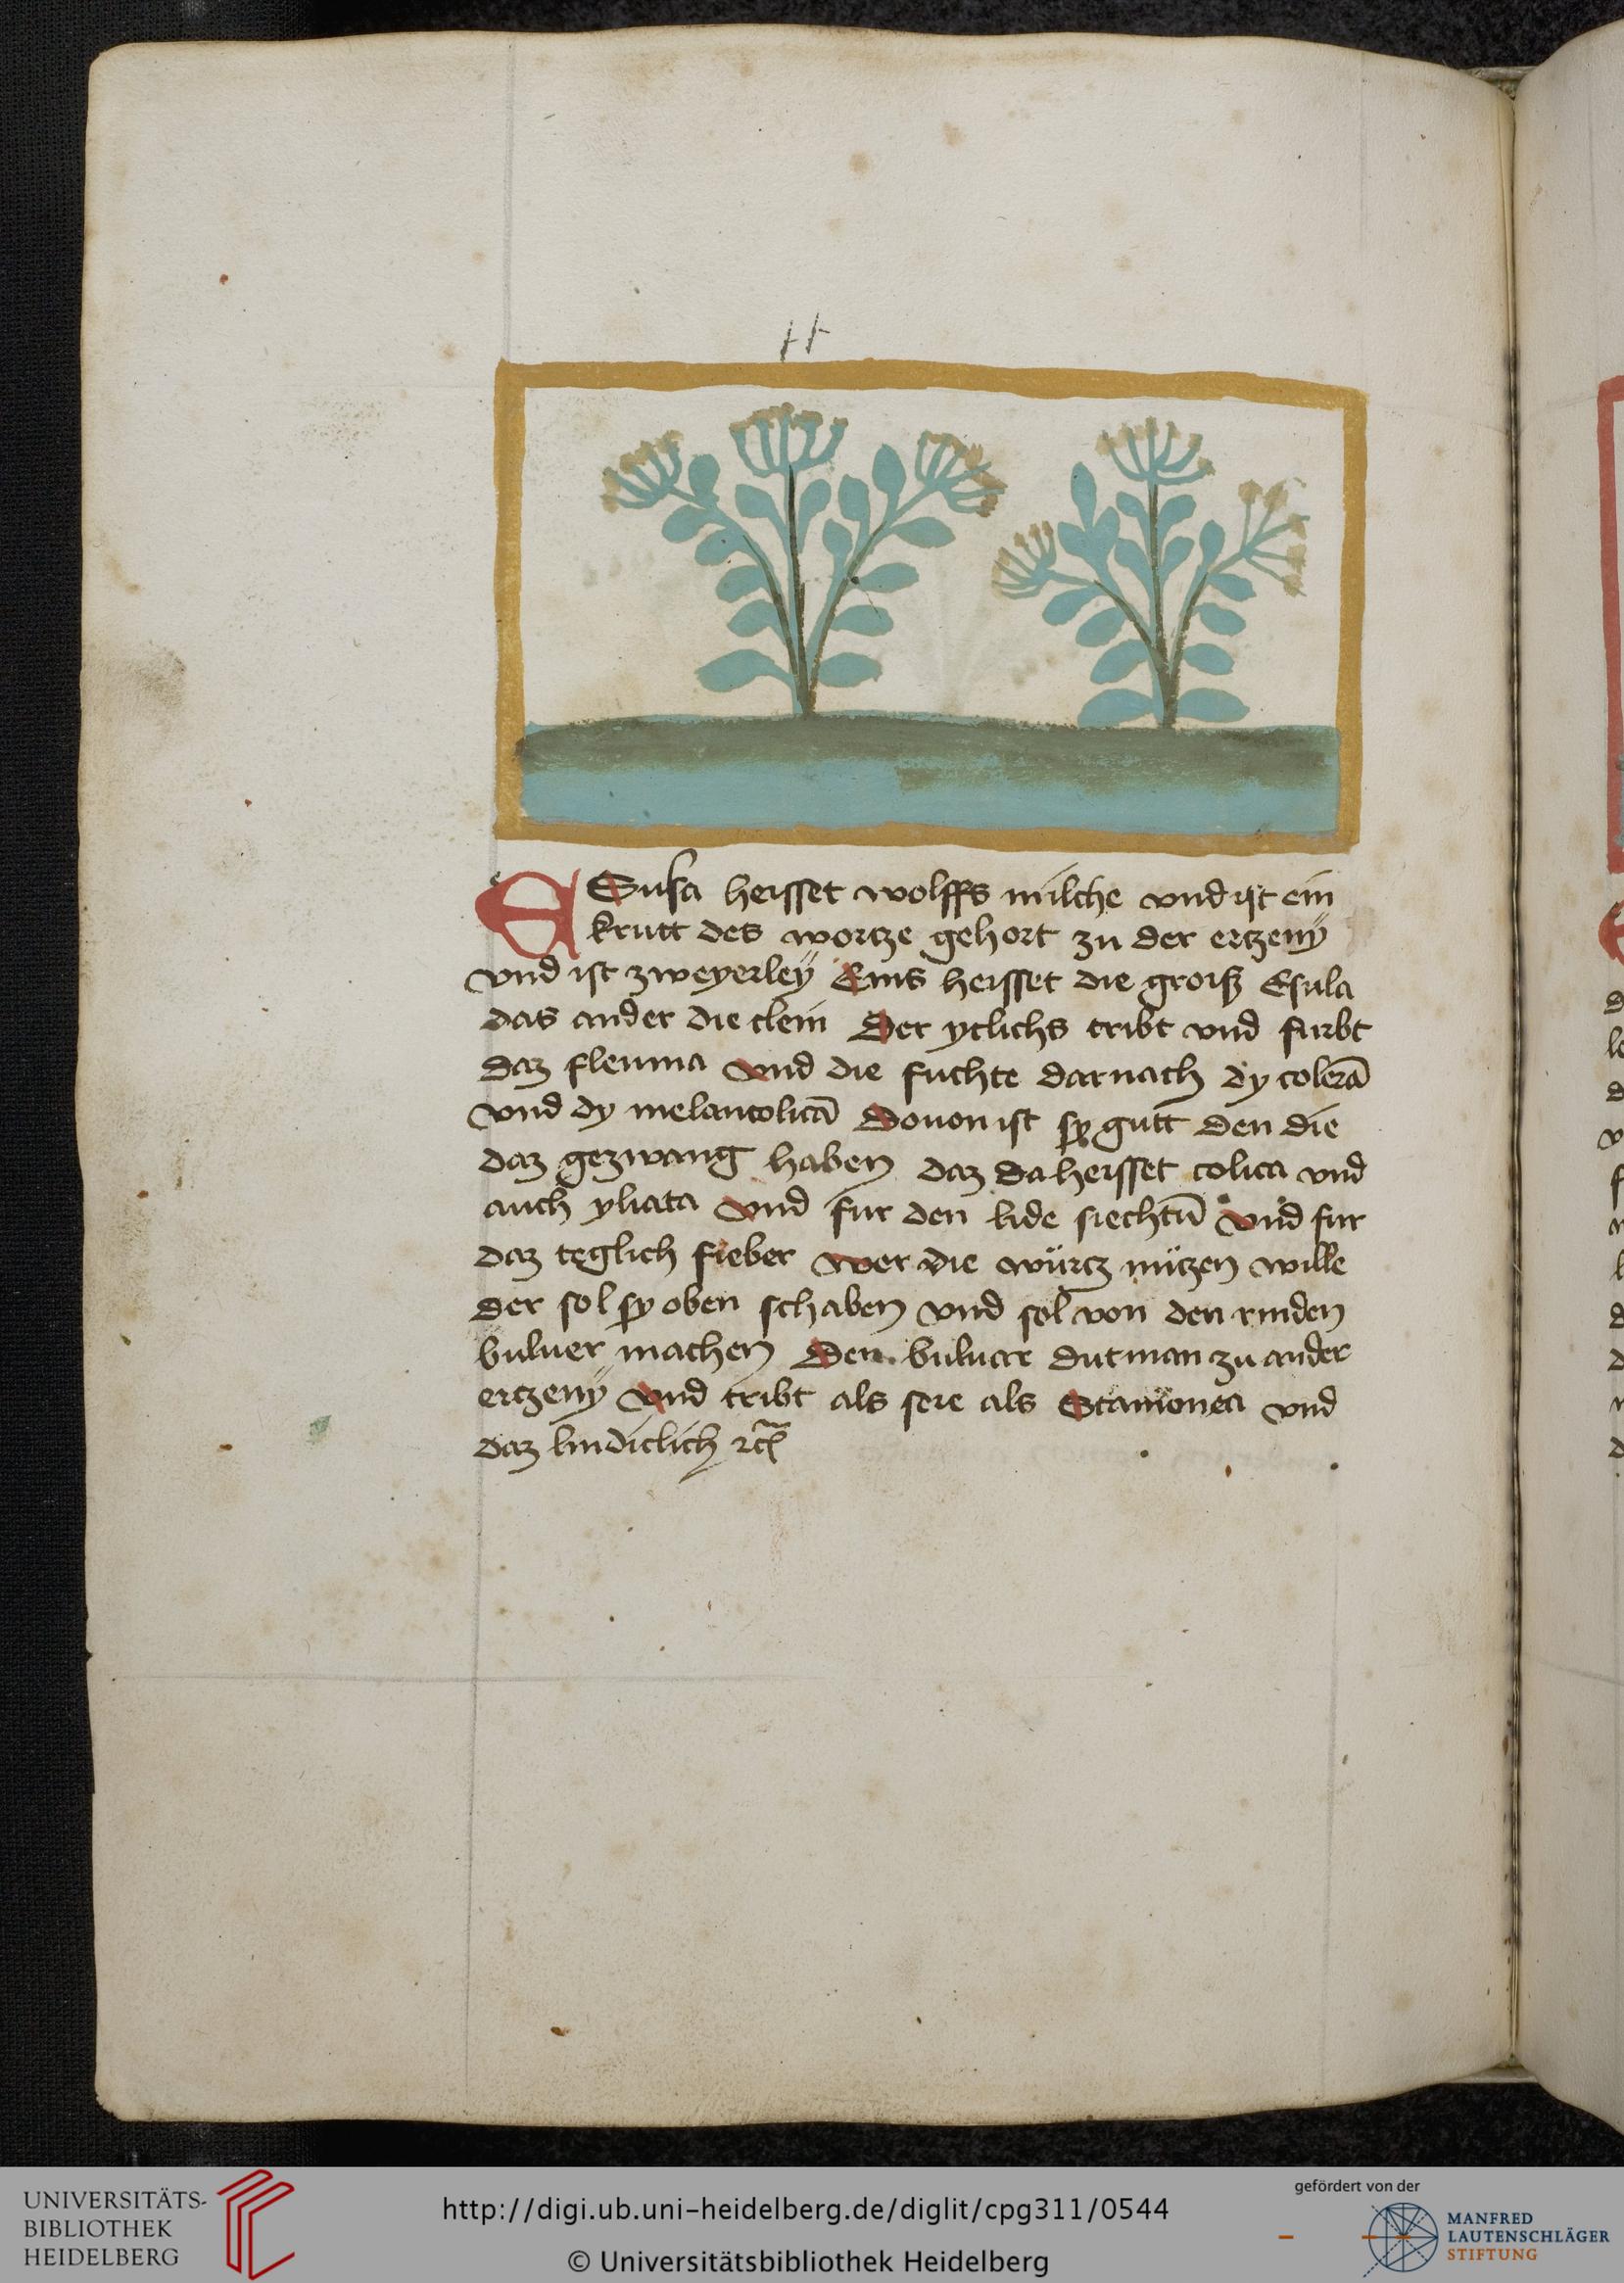 ESusa heisset wolffs milche vnd ist ein
krutt des wortze gehort zu der ertzeny
vnd ist zweyerley Eins heisset die groiß Esula
das ander die clein Der ytlichs tribt vnd furbt
daz fleuma vnd die fuchte darnach dy colerā
vnd dy melancolicā Douon ist sy gutt den die
daz gezwang haben daz da heisset colica vnd
auch yliata vnd fur den lide siechtū vnd fur
daz teglich fieber wer die würtz nützen wille
der sol sy oben schaben vnd sol von den rinden
buluer machen Den buluer dut man zu ander
ertzeny vnd tribt als sere als Scamonea vnd
daz lindiclich
UNIVERSITÄTS-
BIBLIOTHEK
HEIDELBERG
http://digi.ub.uni-heidelberg.de/diglit/cpg311/0544
© Universitätsbibliothek Heidelberg
gefördert von der
MANFRED
LAUTENSCHLÄGER
STIFTUNG